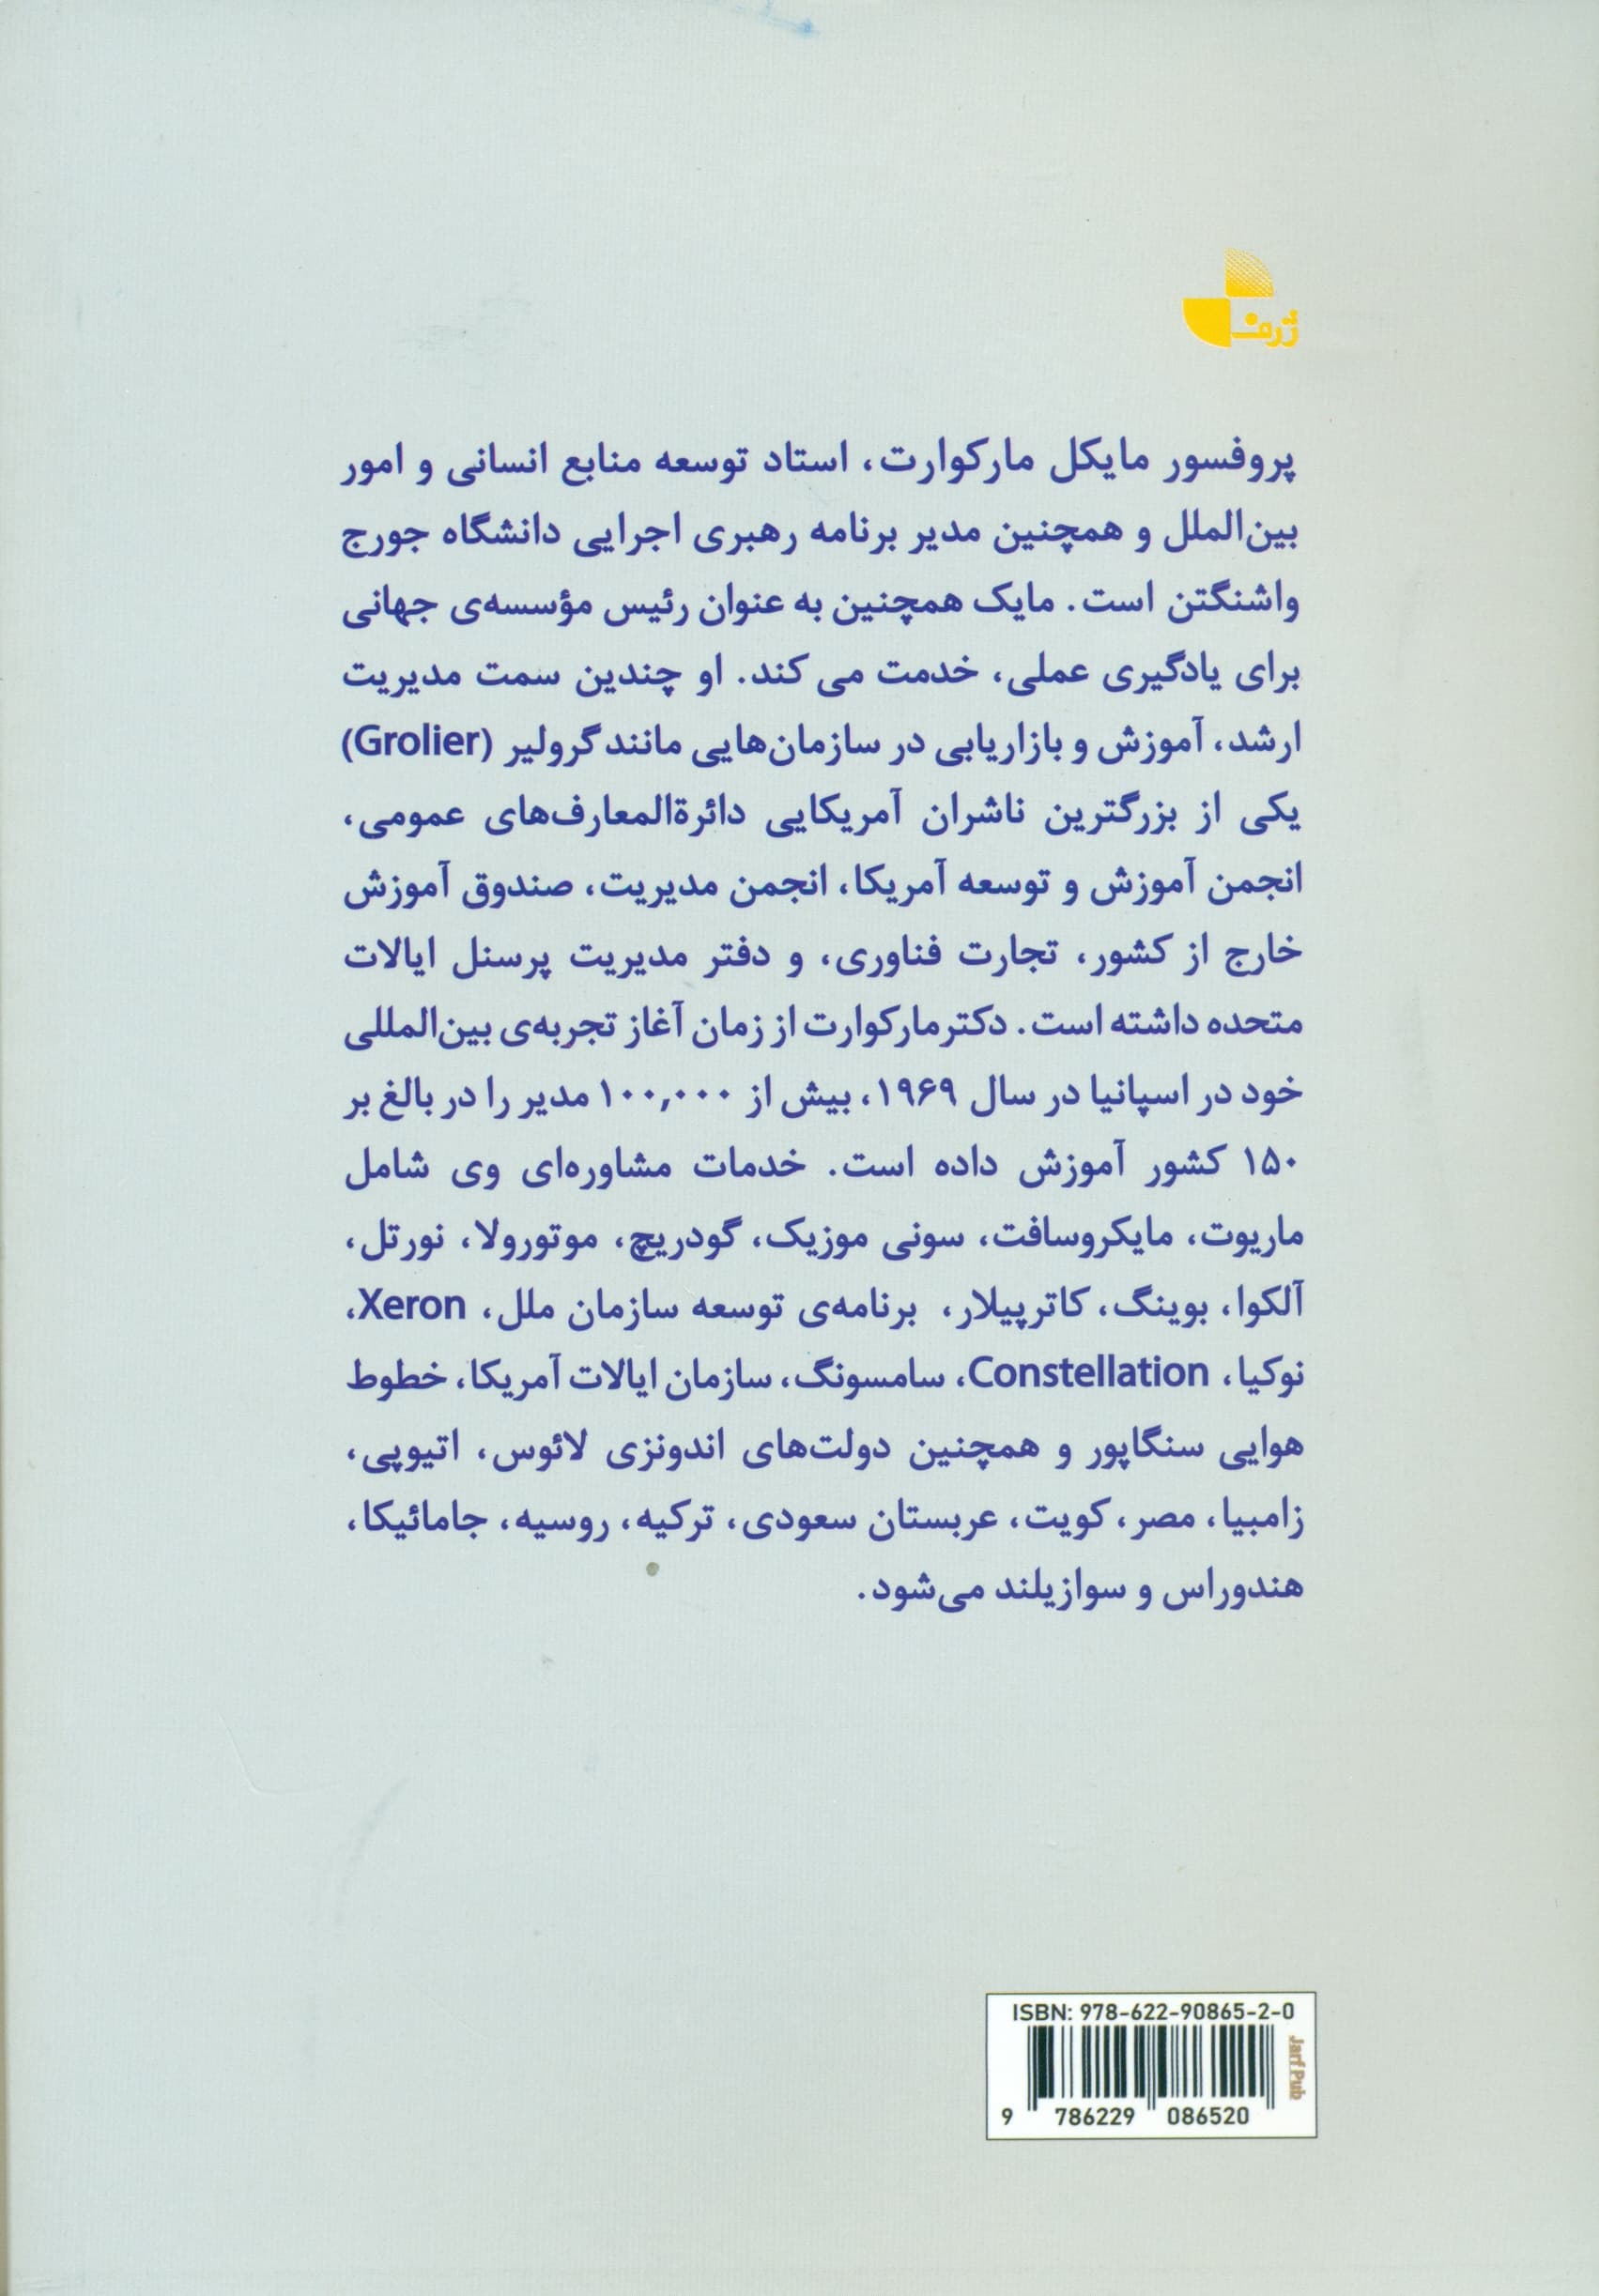 ژرف
پروفسور مایکل مارکوارت، استاد توسعه منابع انسانی و امور
بین‌الملل و همچنین مدیر برنامه رهبری اجرایی دانشگاه جورج
واشنگتن است. مایک همچنین به عنوان رئیس مؤسسه‌ی جهانی
برای یادگیری عملی، خدمت می کند. او چندین سمت مدیریت
ارشد، آموزش و بازاریابی در سازمان‌هایی مانند گرولیر (Grolier)
یکی از بزرگترین ناشران آمریکایی دائرةالمعارف‌های عمومی،
انجمن آموزش و توسعه آمریکا، انجمن مدیریت، صندوق آموزش
خارج از کشور، تجارت فناوری، و دفتر مدیریت پرسنل ایالات
متحده داشته است. دکتر مارکوارت از زمان آغاز تجربه‌ی بین‌المللی
خود در اسپانیا در سال ۱۹۶۹، بیش از ۱۰۰,۰۰۰ مدیر را در بالغ بر
۱۵۰ کشور آموزش داده است. خدمات مشاوره‌ای وی شامل
ماریوت، مایکروسافت، سونی موزیک، گودریچ، موتورولا، نورتل،
آلکوا، بوینگ، کاترپیلار، برنامه‌ی توسعه سازمان ملل، Xeron،
نوکیا، Constellation، سامسونگ، سازمان ایالات آمریکا، خطوط
هوایی سنگاپور و همچنین دولت‌های اندونزی لائوس، اتیوپی،
زامبیا، مصر، کویت، عربستان سعودی، ترکیه، روسیه، جامائیکا،
هندوراس و سوازیلند می‌شود.
ISBN: 978-622-90865-2-0
Jarf Pub
9 786229 086520